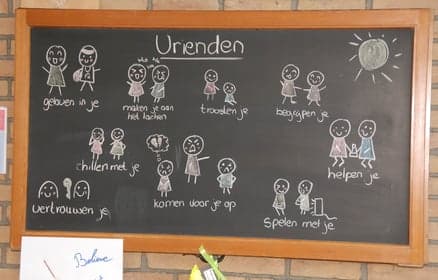 Vrienden
geloven in je
maken je aan
het lachen
troosten je
begrijpen je
chillen met je
helpen je
vertrouwen je
komen voor je op
spelen met je
Believe